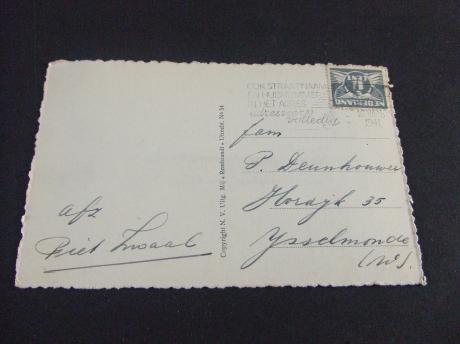 OOK STRAATNAAM
EN HUISNUMMER
IN HET ADRES
adresseer
volledig
1941
NEDERLAND
CENT
fam
P. Deunhouwer
Hordijk 35
Ysselmonde
afz
Piet Zwaal
Copyright N. V. Uitg. Mij „Rembrandt" - Utrecht. No 54